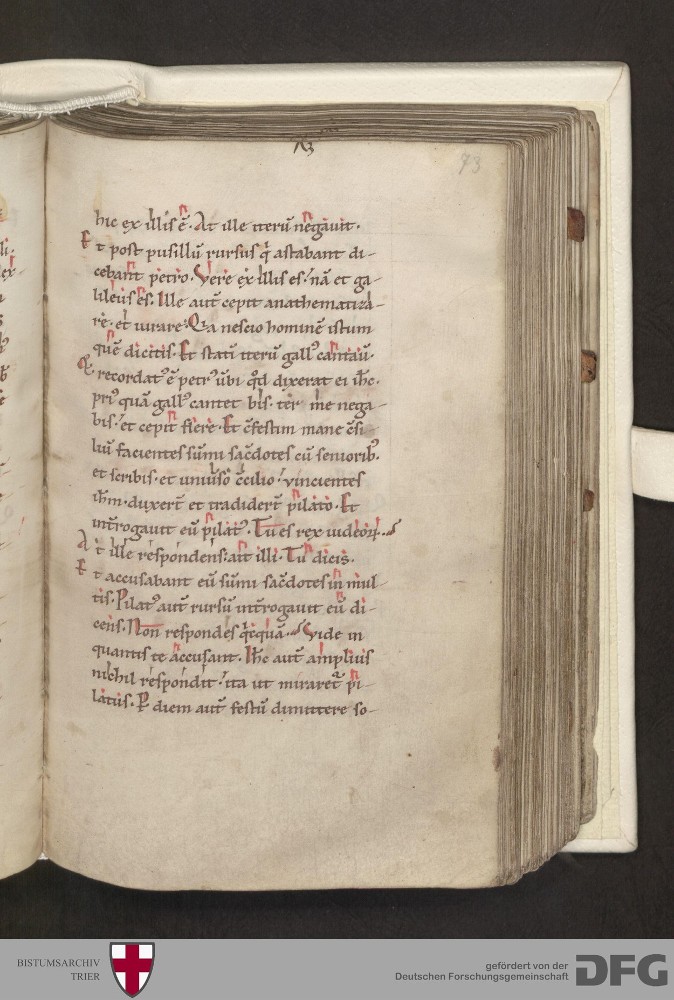 93
hic ex illis ē. At ille iterū negavit.
Et post pusillū rursus q̇ astabant di-
cebant petro. Vere ex illis es. nā et ga-
lileus es. Ille aut̄ cepit anathematiza-
re. et iurare. Q̇a nescio hominē istum
quē dicitis. Et statī iterū gall᾿ cantaū.
Et recordat᾿ ē petr᾿ ūbi qd̄ dixerat ei ih̄c.
pri᾿ quā gall᾿ cantet bis. ter me nega-
bis. et cepit flere. Et c̄festim mane c̄si-
liū facientes sūmi sac̄dotes cū seniorib᾿.
et scribis. et uniuso c̄cilio. vincientes
ih̄m. duxert̄ et tradidert̄ pilato. Et
int̄rogauit eū pilat᾿. Tu es rex iudeoꝝ.
At ille respondens. ait illi. Tu dicis.
Et accusabant eū sūmi sac̄dotes in mul-
tis. Pilat᾿ aut̄ rursū int̄rogauit eū di-
cens. Non respondes q̇cquā. Vide in
quantis te accusant. Ih̄c aut̄ amplius
nichil respondit. ita ut miraret᷑ pi-
latus. Ꝑ diem aut̄ festū dimittere so-
BISTUMSARCHIV
TRIER
gefördert von der
Deutschen Forschungsgemeinschaft
DFG